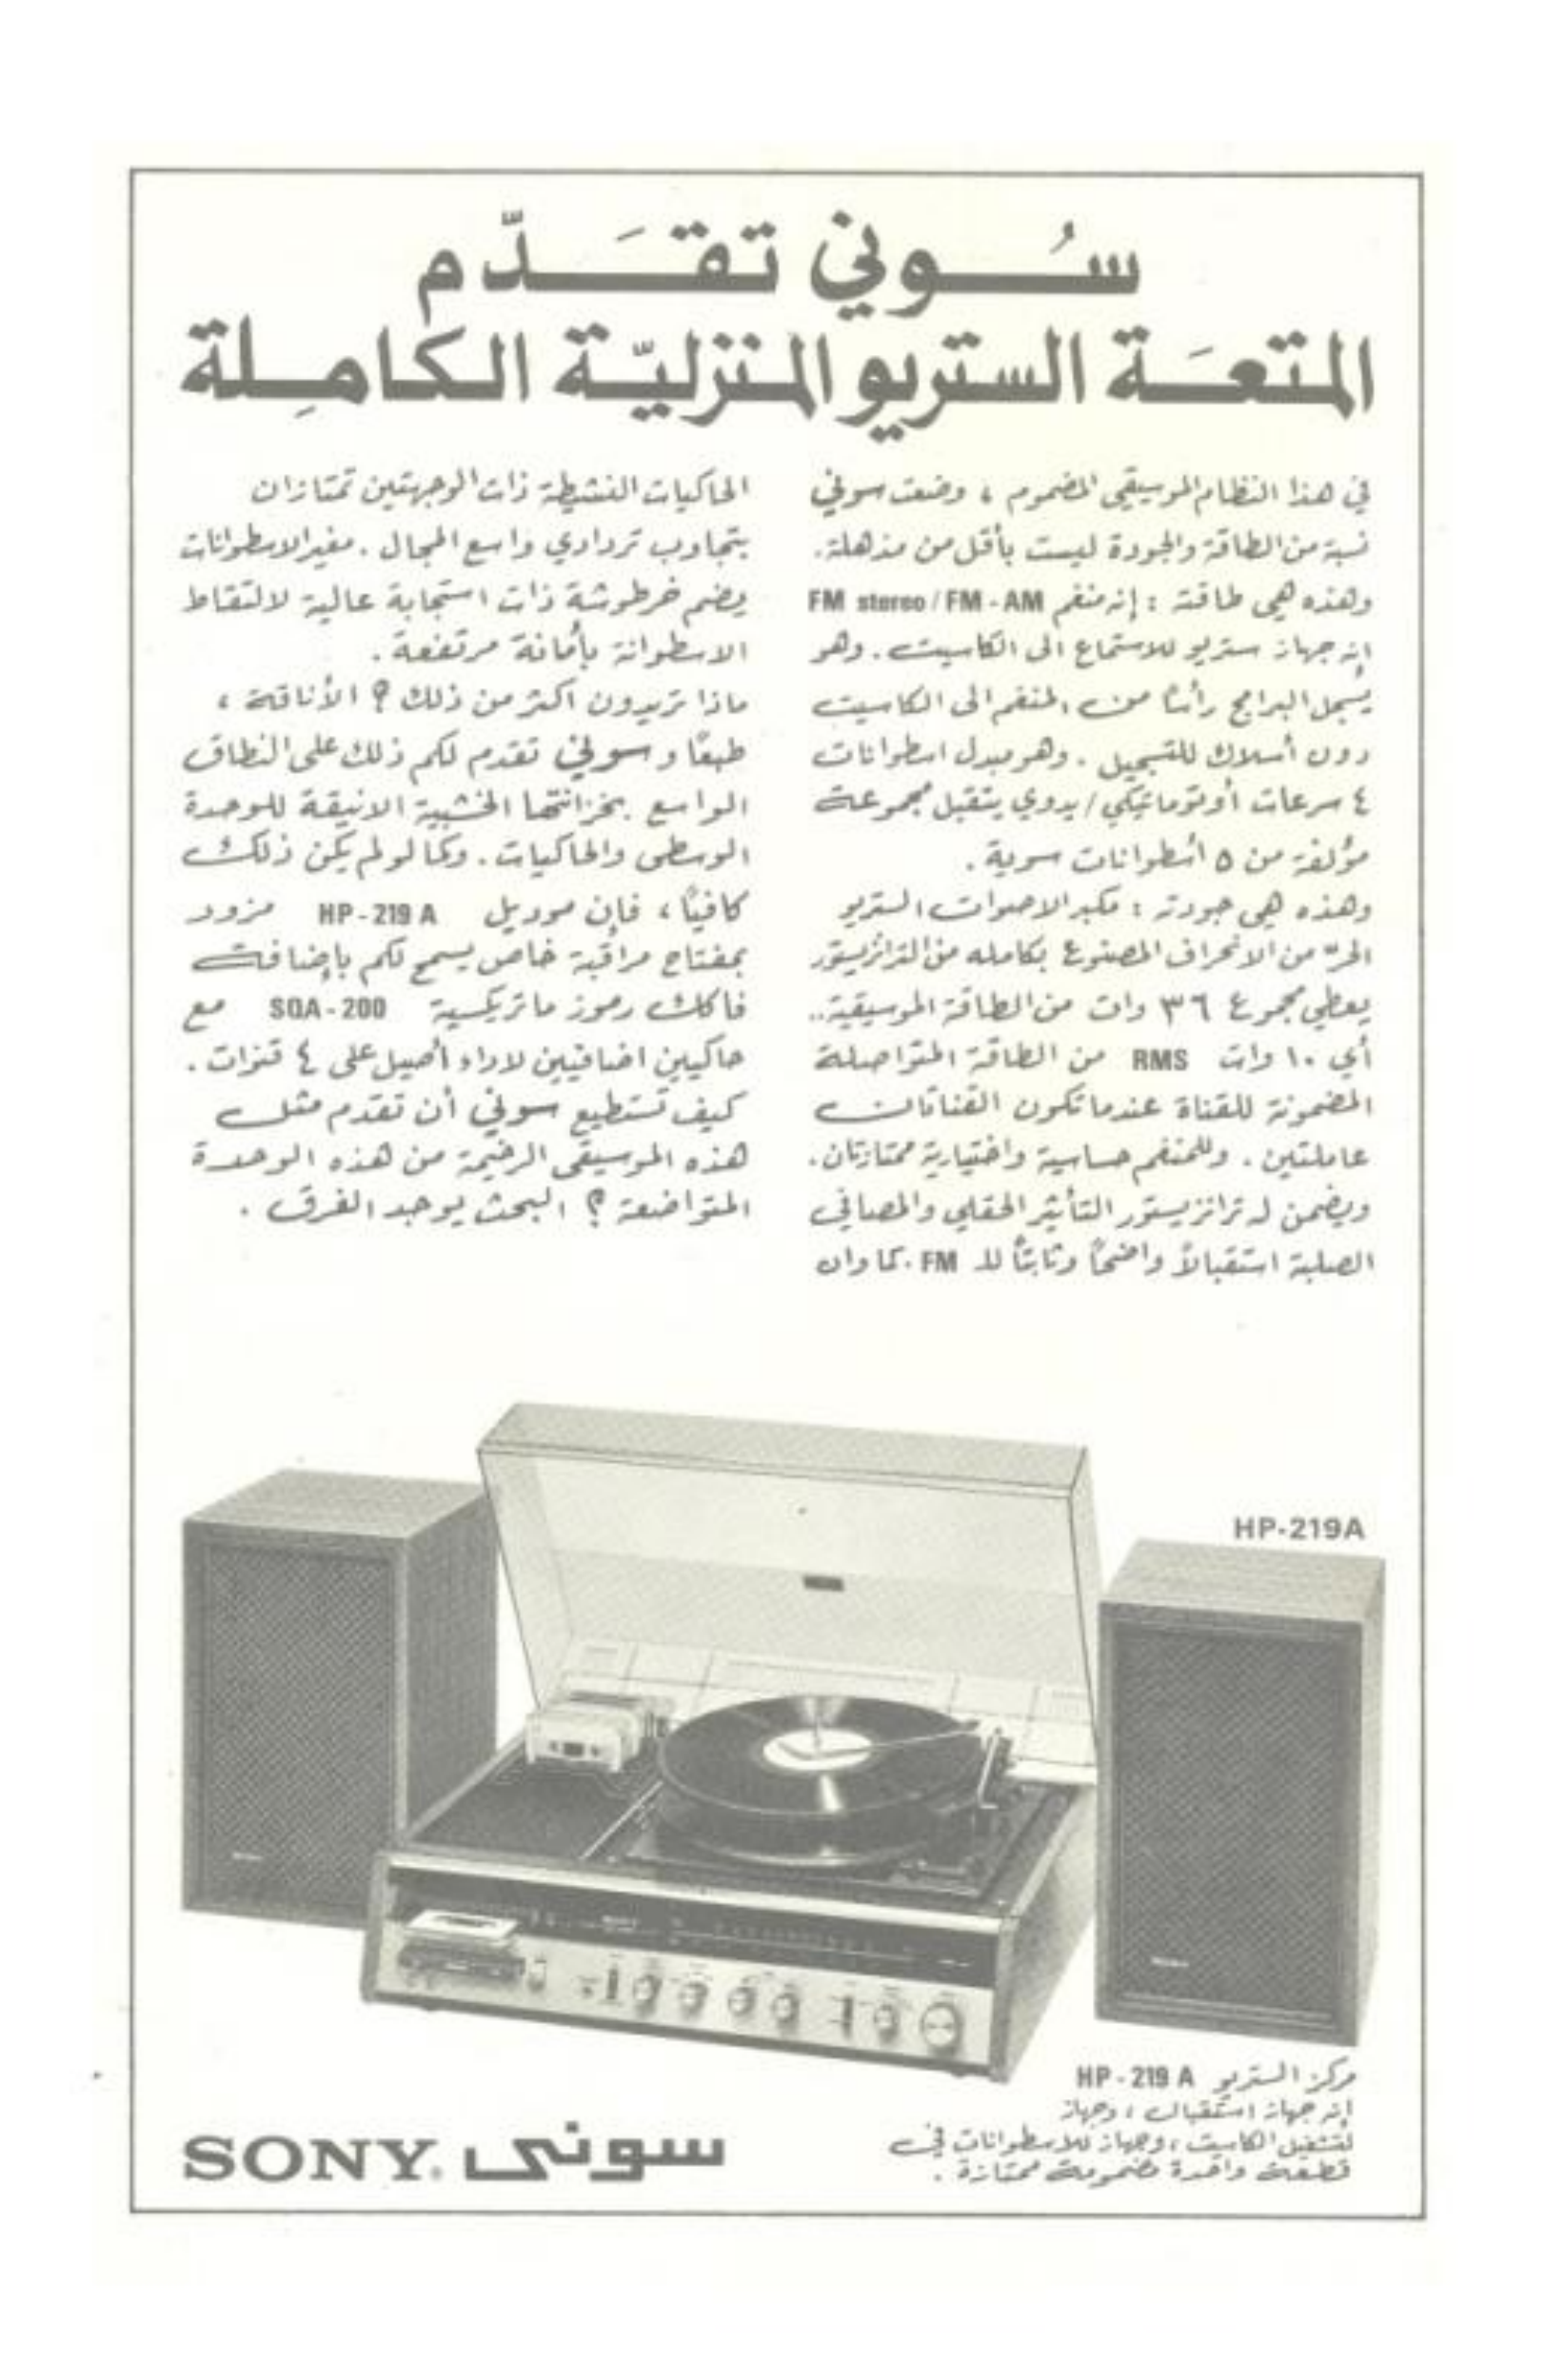 سُوني تقَدّم
المتعَة الستريو المنزليّة الكامِلة
في هذا النظام الموسيقي المضموم ، وضعت سوني
نسبة من الطاقة والجودة ليست بأقل من مذهلة.
وهذه هي طاقته : إنه منغم FM stereo / FM - AM
إنه جهاز ستريو للاستماع الى الكاسيت . وهو
يسجل البرامج رأسًا من المنغم الى الكاسيت
دون أسلاك للتسجيل . وهو مبدل اسطوانات
٤ سرعات أوتوماتيكي / يدوي يتقبل مجموعة
مؤلفة من ٥ أسطوانات سوية .
وهذه هي جودته : مكبر الاصوات الستريو
الحرّ من الانحراف المصنوع بكامله من الترانزيستور
يعطي مجموع ٣٦ وات من الطاقة الموسيقية..
أي ١٠ وات RMS من الطاقة المتواصلة
المضمونة للقناة عندما تكون القناتان
عاملتين . وللمنغم حساسية واختيارية ممتازتان.
ويضمن له ترانزيستور التأثير الحقلي والمصافي
الصلبة استقبالاً واضحًا وثابتًا للـ FM . كما وان
الحاكيات النشيطة ذات الوجهتين تمتازان
بتجاوب ترددي واسع المجال . مغير الاسطوانات
يضم خرطوشة ذات استجابة عالية لالتقاط
الاسطوانة بأمانة مرتفعة .
ماذا تريدون اكثر من ذلك ؟ الأناقة ،
طبعًا وسوني تقدم لكم ذلك على النطاق
الواسع بخزانتها الخشبية الانيقة للوحدة
الوسطى والحاكيات . وكما لو لم يكن ذلك
كافيًا ، فإن موديل HP - 219 A مزود
بمفتاح مراقبة خاص يسمح لكم بإضافة
فاكك رموز ماتريكسية SQA - 200 مع
حاكيين اضافيين لاداء أصيل على ٤ قنوات .
كيف تستطيع سوني أن تقدم مثل
هذه الموسيقى الرخيمة من هذه الوحدة
المتواضعة ؟ البحث يوجد الفرق .
HP-219A
مركز الستريو HP - 219 A
إنه جهاز استقبال ، وجهاز
لتشغيل الكاسيت ، وجهاز للاسطوانات في
قطعة واحدة مضمومة ممتازة .
SONY® سوني